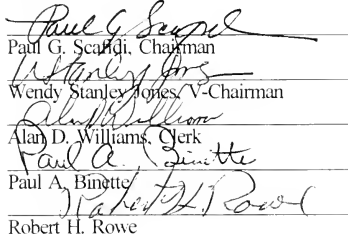 Paul G Scafidi
Paul G. Scafidi, Chairman
W Stanley Jones
Wendy Stanley Jones, V-Chairman
Alan D Williams
Alan D. Williams, Clerk
Paul A. Binette
Paul A. Binette
Robert H Rowe
Robert H. Rowe